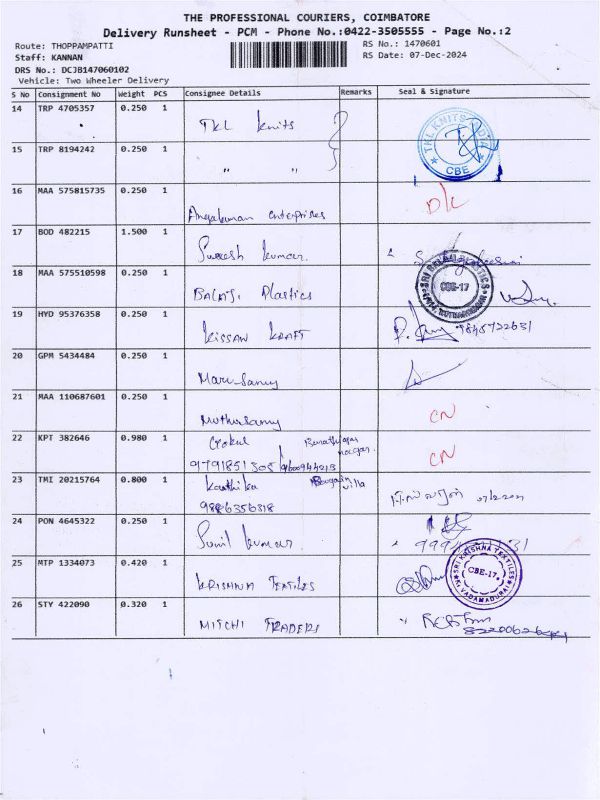 THE PROFESSIONAL COURIERS, COIMBATORE
Delivery Runsheet - PCM - Phone No.:0422-3505555 - Page No.:2
Route: THOPPAMPATTI RS No.: 1470601
Staff: KANNAN RS Date: 07-Dec-2024
DRS No.: DCJB147060102
Vehicle: Two Wheeler Delivery
S No Consignment No Weight PCS Consignee Details Remarks Seal & Signature
14 TRP 4705357 0.250 1
TKL knits
TKL KNITS INDIA
CBE
15 TRP 8194242 0.250 1
" "
16 MAA 575815735 0.250 1
enterprises
D/L
17 BOD 482215 1.500 1
Suresh kumar.
18 MAA 575510598 0.250 1
BALAJI Plastics
SRI BALAJI PLASTICS
CBE-17
19 HYD 95376358 0.250 1
KISSAN KRAFT
20 GPM 5434484 0.250 1
Maru Samy
21 MAA 110687601 0.250 1
Muthu Samy
CN
22 KPT 382646 0.980 1
Gokul
nagar.
9791851505
CN
23 TMI 20215764 0.800 1
Karthika
villa
9886356318
24 PON 4645322 0.250 1
Sunil kumar
25 MTP 1334073 0.420 1
KRISHNA TEXTILES
SRI KRISHNA TEXTILES
CBE-17
K.VADAMADURAI
26 STY 422090 0.320 1
MITCHI TRADERS